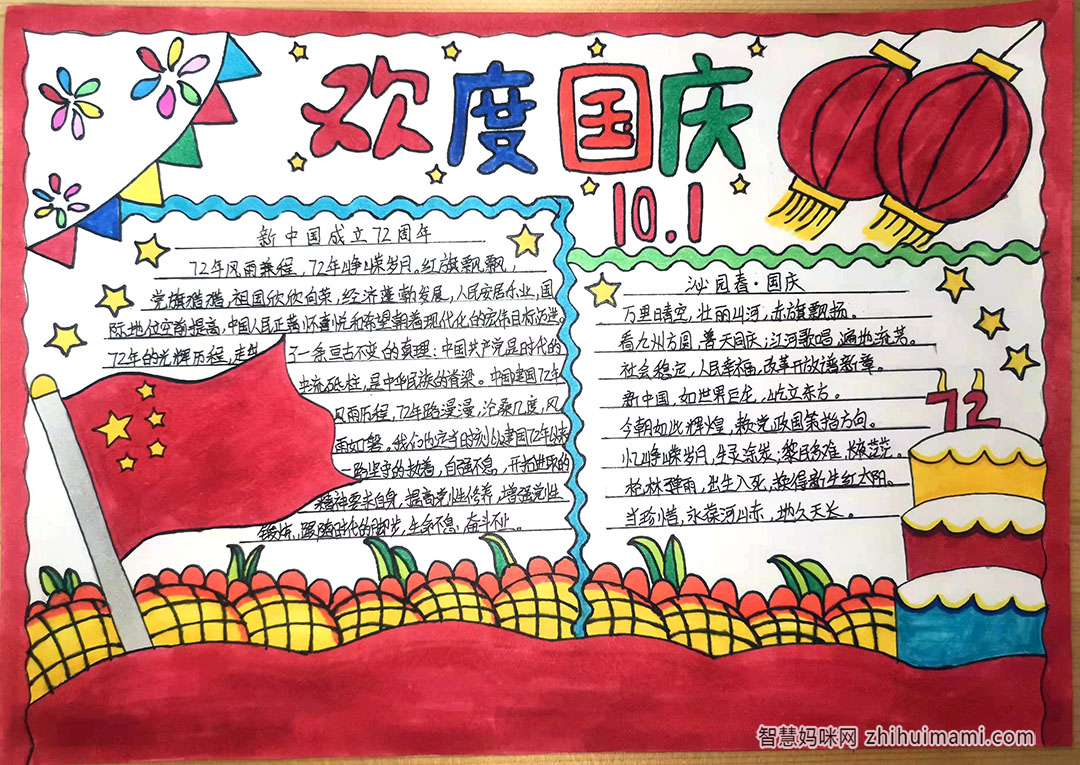 欢度国庆
10.1
新中国成立72周年
72年风雨兼程，72年峥嵘岁月。红旗飘飘，
党旗猎猎，祖国欣欣向荣，经济蓬勃发展，人民安居乐业，国
际地位空前提高，中国人民正满怀喜悦和希望朝着现代化的宏伟目标迈进
72年的光辉历程，走
了一条亘古不变的真理：中国共产党是时代的
中流砥柱，是中华民族的脊梁。中国建国72年
风雨历程，72年路漫漫，沧桑几度，风
雨如磐。我们也应当的以建国72年
一路坚守的执着，自强不息，开拓进取的
精神要求自身，提高党性修养，增强党性
锻炼，跟随时代的脚步，生命不息，奋斗不止。
沁园春·国庆
万里晴空，壮丽山河，赤旗飘扬。
看九州方圆，普天同庆；江河歌唱，遍地流芳。
社会稳定，人民幸福，改革开放谱新章。
新中国，如世界巨龙，屹立东方。
今朝如此辉煌，赖党政国策指方向。
忆峥嵘岁月，生灵涂炭；黎民多难，长夜茫茫。
枪林弹雨，出生入死，换得新生红太阳。
当珍惜，永葆河山赤，地久天长。
72
智慧妈咪网 zhihuimami.com